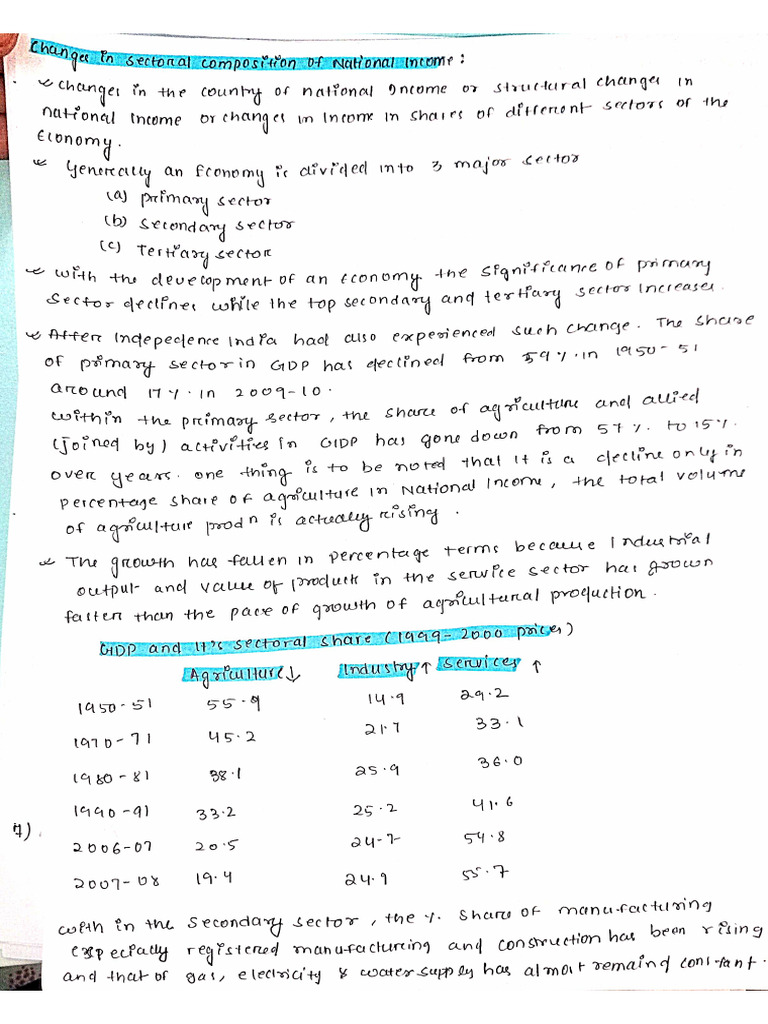 Changes in sectoral composition of National Income:
Changes in the country of national Income or structural changes in
national income or changes in Income in shares of different sectors of the
Economy.
Generally an Economy is divided into 3 major sector
(a) primary sector
(b) secondary sector
(c) Tertiary sector
with the development of an Economy the significance of primary
sector declines while the top secondary and tertiary sector increases.
After Indepedence India had also experienced such change. The share
of primary sector in GDP has declined from 59%. in 1950-51
around 17%. in 2009-10.
within the primary sector, the share of agriculture and allied
(joined by) activities in GDP has gone down from 57%. to 15%.
over years. one thing is to be noted that it is a decline only in
percentage share of agriculture in National Income, the total volume
of agriculture prodn is actually rising.
The growth has fallen in percentage terms because Industrial
output and value of products in the service sector has grown
faster than the pace of growth of agricultural production.
GDP and It's sectoral share (1999-2000 prices)
Agriculture↓ Industry↑ Services ↑
1950-51 55.9 14.9 29.2
1970-71 45.2 21.7 33.1
1980-81 38.1 25.9 36.0
1990-91 33.2 25.2 41.6
2006-07 20.5 24.7 54.8
2007-08 19.4 24.9 55.7
with in the secondary sector, the % share of manufacturing
especially registered manufacturing and construction has been rising
and that of gas, electricity & water supply has almost remaind constant.